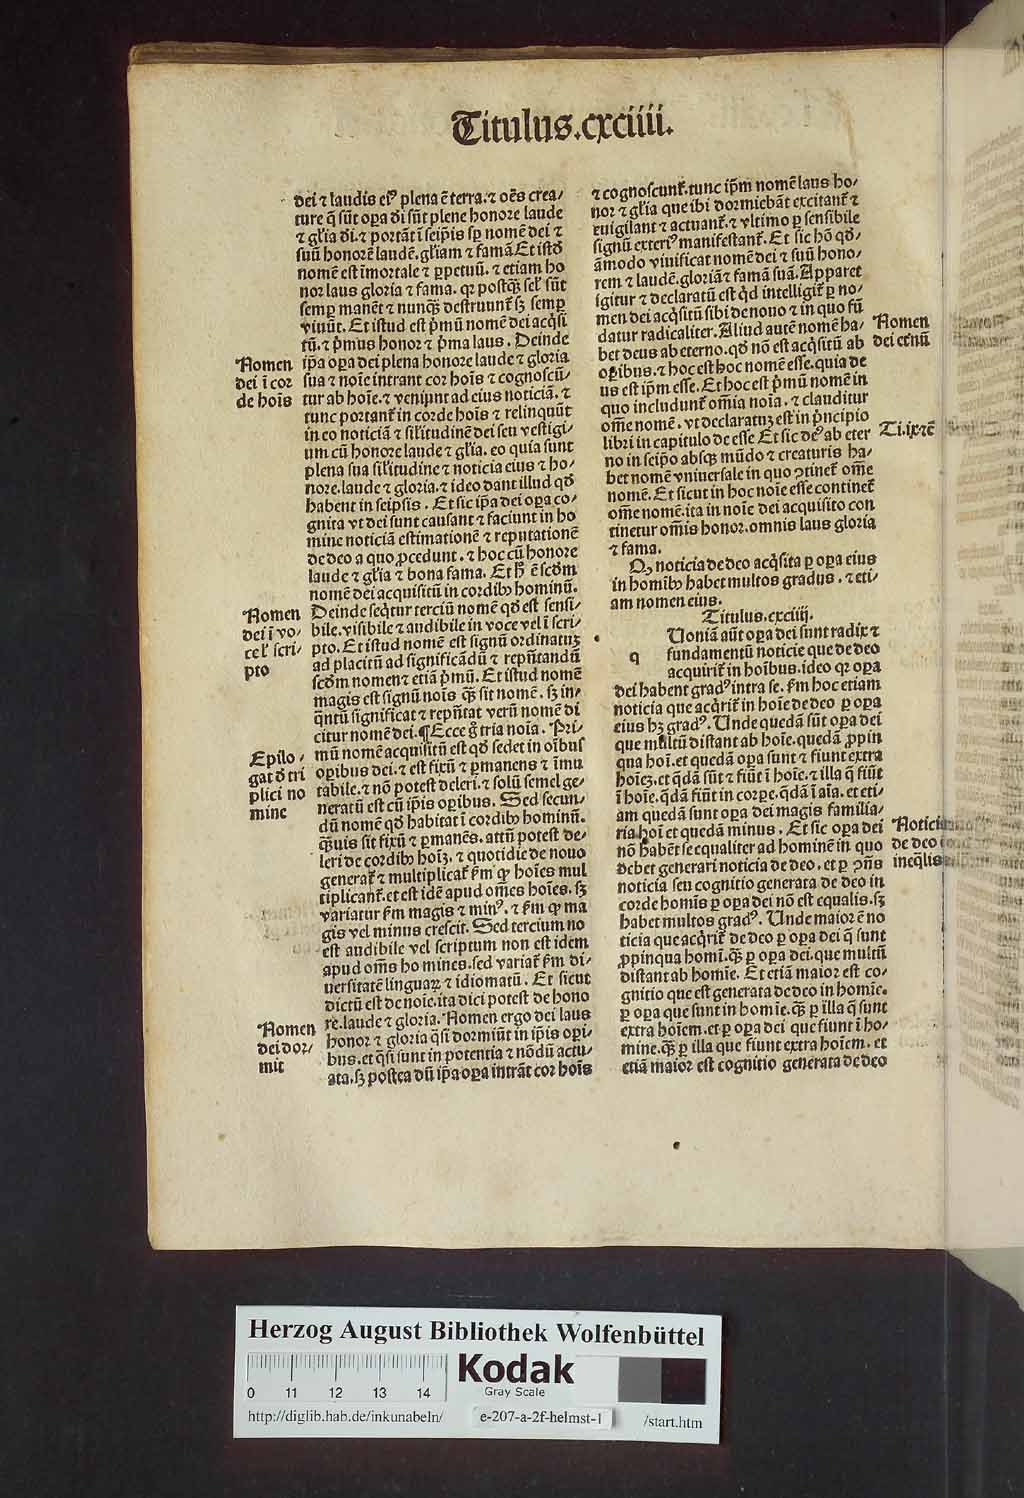 Titulus.cxciiii.
dei ⁊ laudis eiꝰ plena ē terra.⁊ oēs crea/
ture q̄ sūt oꝑa dī sūt plene honore laude
⁊ gl̄ia dī.⁊ portāt ī seip̄is sꝑ nomē dei ⁊
suū honorē laudē.gl̄iam ⁊ famā Et istd̄
nomē est īmortale ⁊ ꝑpetuū.⁊ etiam ho
nor laus gloria ⁊ fama. qꝛ postqꝫ̄ sel̄ sūt
semꝑ manēt ⁊ nunqꝫ̄ destruunt̄ sꝫ semꝑ
viuūt. Et istud est p̄mū nomē dei acq̄si
tū.⁊ p̄mus honor ⁊ p̄ma laus. Deinde
ip̄a oꝑa dei plena honore laude ⁊ gloria
sua ⁊ noīe intrant cor hoīs ⁊ cognoscū/
tur ab hoīe.⁊ veniunt ad eius noticiā.⁊
tunc portant̄ in corde hoīs ⁊ relinquūt
in eo noticiā ⁊ sil̄itudinē dei seu vestigi/
um cū honore laude ⁊ gl̄ia. eo quia sunt
plena sua sil̄itudine ⁊ noticia eius ⁊ ho/
nore.laude ⁊ gloria.⁊ ideo dant illud qd̄
habent in seipsis. Et sic ip̄a dei oꝑa co/
gnita vt dei sunt causant ⁊ faciunt in ho
mine noticiā estimationē ⁊ reputationē
de deo a quo ꝓcedunt.⁊ hoc cū honore
laude ⁊ gl̄ia ⁊ bona fama. Et h̄ ē scd̄m
nomē dei acquisitū in cordibꝰ hominū.
Deinde seq̄tur terciū nomē qd̄ est sensi/
bile.visibile ⁊ audibile in voce vel ī scri/
pto. Et istud nomē est signū ordinatuꝫ
ad placitū ad significādū ⁊ rep̄ntandū
scd̄m nomen ⁊ etiā p̄mū. Et istud nomē
magis est signū noīs qꝫ̄ sit nomē. sꝫ in/
q̄ntū significat ⁊ rep̄ntat verū nomē di
citur nomē dei.¶Ecce g̊ tria noīa. Pri/
mū nomē acquisitū est qd̄ sedet in oībus
oꝑibus dei.⁊ est fixū ⁊ ꝑmanens ⁊ īmu
tabile.⁊ nō potest deleri.⁊ solū semel ge/
neratū est cū ip̄is oꝑibus. Sed secun/
dū nomē qd̄ habitat ī cordibꝰ hominū.
qꝫ̄uis sit fixū ⁊ ꝑmanēs. attn̄ potest de/
leri de cordibꝰ hoīꝫ.⁊ quotidie de nouo
generat̄ ⁊ multiplicat̄ ẜm ꝙ hoīes mul
tiplicant̄.et est idē apud om̄es hoīes. sꝫ
variatur ẜm magis ⁊ minꝰ.⁊ ẜm ꝙ ma
gis vel minus crescit. Sed tercium no
est audibile vel scriptum non est idem
apud om̄s homines.sed variat̄ ẜm di/
uersitatē linguaꝝ ⁊ idiomatū. Et sicut
dictū est de noīe.ita dici potest de hono
re.laude ⁊ gloria. Nomen ergo dei laus
honor ⁊ gloria q̄si dormiūt in ip̄is oꝑi/
bus.et q̄si sunt in potentia ⁊ nōdū actu/
ata.sꝫ postea dū ip̄a oꝑa intrāt cor hoīs
Nomen
dei ī cor
de hoīs
Nomen
dei ī vo/
ce l̄ scri/
pto
Epilo/
gat d̄ tri
plici no
mine
Nomen
dei dor/
mit
⁊ cognoscunt̄.tunc ip̄m nomē laus ho/
nor ⁊ gl̄ia que ibi dormiebāt excitant̄ ⁊
euigilant ⁊ actuant̄.⁊ vltimo ꝑ sensibile
signū exteriꝰ manifestant̄. Et sic hō qd̄/
āmodo viuificat nomē dei ⁊ suū hono/
rem ⁊ laudē.gloriā ⁊ famā suā. Apparet
igitur ⁊ declaratū est qd̄ intelligit̄ ꝑ no/
men dei acq̄sitū sibi de nouo ⁊ in quo fū
datur radicaliter. Aliud autē nomē ha/
bet deus ab eterno. qd̄ nō est acq̄sitū ab
oꝑibus.⁊ hoc est hoc nomē esse.quia de
us est ip̄m esse. Et hoc est p̄mū nomē in
quo includunt̄ om̄ia noīa.⁊ clauditur
om̄e nomē. vt declaratuꝫ est in p̄ncipio
libri in capitulo de esse Et sic deꝰ ab eter
no in seip̄o absqꝫ mūdo ⁊ creaturis ha/
bet nomē vniuersale in quo ꝯtinet̄ om̄e
nomē. Et sicut in hoc noīe esse continet̄
om̄e nomē.ita in noīe dei acquisito con
tinetur om̄is honor.omnis laus gloria
⁊ fama.
Qꝫ noticia de deo acq̄sita ꝑ oꝑa eius
in homībꝰ habet multos gradus. ⁊ eti/
am nomen eius.
Titulus.cxciiij.
q
Uoniā aūt oꝑa dei sunt radix ⁊
fundamentū noticie que de deo
acquirit̄ in hoībus.ideo qꝛ oꝑa
dei habent gradꝰ intra se. ẜm hoc etiam
noticia que acq̄rit̄ in hoīe de deo ꝑ oꝑa
eius hꝫ gradꝰ. Unde quedā sūt oꝑa dei
que multū distant ab hoīe.quedā ꝓpin
qua hoī.et quedā oꝑa sunt ⁊ fiunt extra
hoīeꝫ.et q̄dā sūt ⁊ fiūt ī hoīe.⁊ illa q̄ fiūt
ī hoīe.q̄dā fiūt in corꝑe.q̄dā ī aīa.et eti/
am quedā sunt oꝑa dei magis familia/
ria hoī et quedā minus. Et sic oꝑa dei
nō habēt se equaliter ad hominē in quo
debet generari noticia de deo.et ꝑ ꝯn̄s
noticia seu cognitio generata de deo in
corde homīs ꝑ oꝑa dei nō est equalis.sꝫ
habet multos gradꝰ. Unde maior ē no
ticia que acq̄rit̄ de deo ꝑ oꝑa dei q̄ sunt
ꝓpinqua homī.qꝫ̄ ꝑ oꝑa dei.que multū
distant ab homīe. Et etiā maior est co/
gnitio que est generata de deo in homīe.
ꝑ oꝑa que sunt in homīe.qꝫ̄ ꝑ illa q̄ sunt
extra hoīem.et ꝑ oꝑa dei que fiunt ī ho/
mine.qꝫ̄ ꝑ illa que fiunt extra hoīem. et
etiā maior est cognitio generata de deo
Nomen
dei et̄nū
Ti.ix⁊ē
Noticia
de deo
ineq̄lis
Herzog August Bibliothek Wolfenbüttel
0 11 12 13 14
Kodak
Gray Scale
http://diglib.hab.de/inkunabeln/ e-207-a-2f-helmst-1 /start.htm